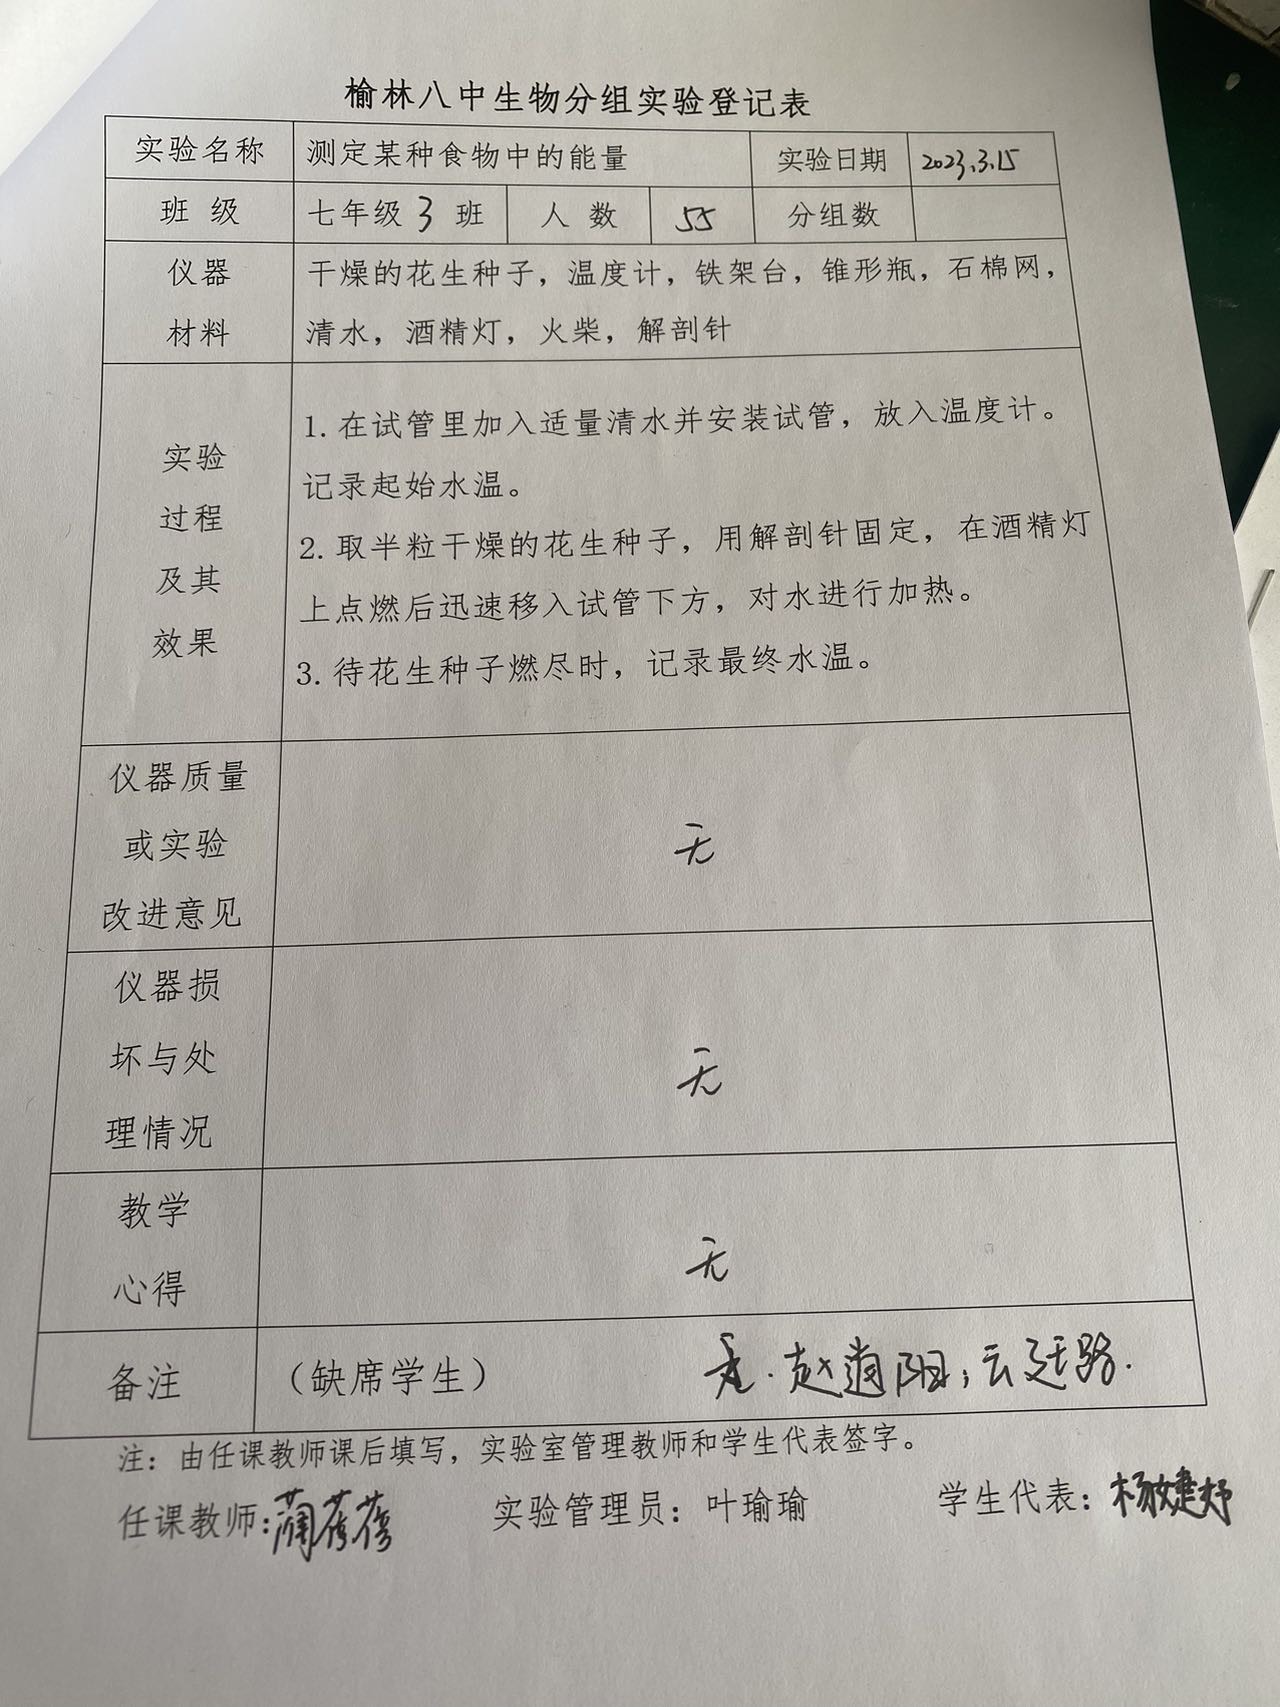 榆林八中生物分组实验登记表
实验名称 测定某种食物中的能量 实验日期 2023.3.15
班 级 七年级 3 班 人 数 55 分组数
仪器 干燥的花生种子，温度计，铁架台，锥形瓶，石棉网，
材料 清水，酒精灯，火柴，解剖针
1. 在试管里加入适量清水并安装试管，放入温度计。
实验 记录起始水温。
过程 2. 取半粒干燥的花生种子，用解剖针固定，在酒精灯
及其 上点燃后迅速移入试管下方，对水进行加热。
效果 3. 待花生种子燃尽时，记录最终水温。
仪器质量
或实验 无
改进意见
仪器损
坏与处 无
理情况
教学
心得 无
备注 （缺席学生） 赵 阳；云廷路.
注：由任课教师课后填写，实验室管理教师和学生代表签字。
任课教师: 蓓蓓 实验管理员：叶瑜瑜 学生代表：杨婕妤